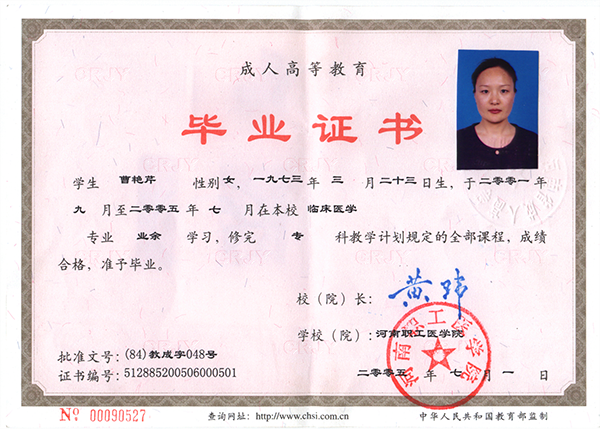 成人高等教育
毕业证书
学生 曹艳芹 性别 女，一九七三年 三 月二十三日生，于二零零一年
九 月至二零零五年 七 月在本校 临床医学
专业 业余 学习，修完 专 科教学计划规定的全部课程，成绩
合格，准予毕业。
校（院）长：黄玮
学校（院）：河南职工医学院
河南职工医学院
批准文号：(84)教成字048号
证书编号：512885200506000501
二零零五 年 七 月 一 日
№ 00090527
查询网址：http://www.chsi.com.cn
中华人民共和国教育部监制